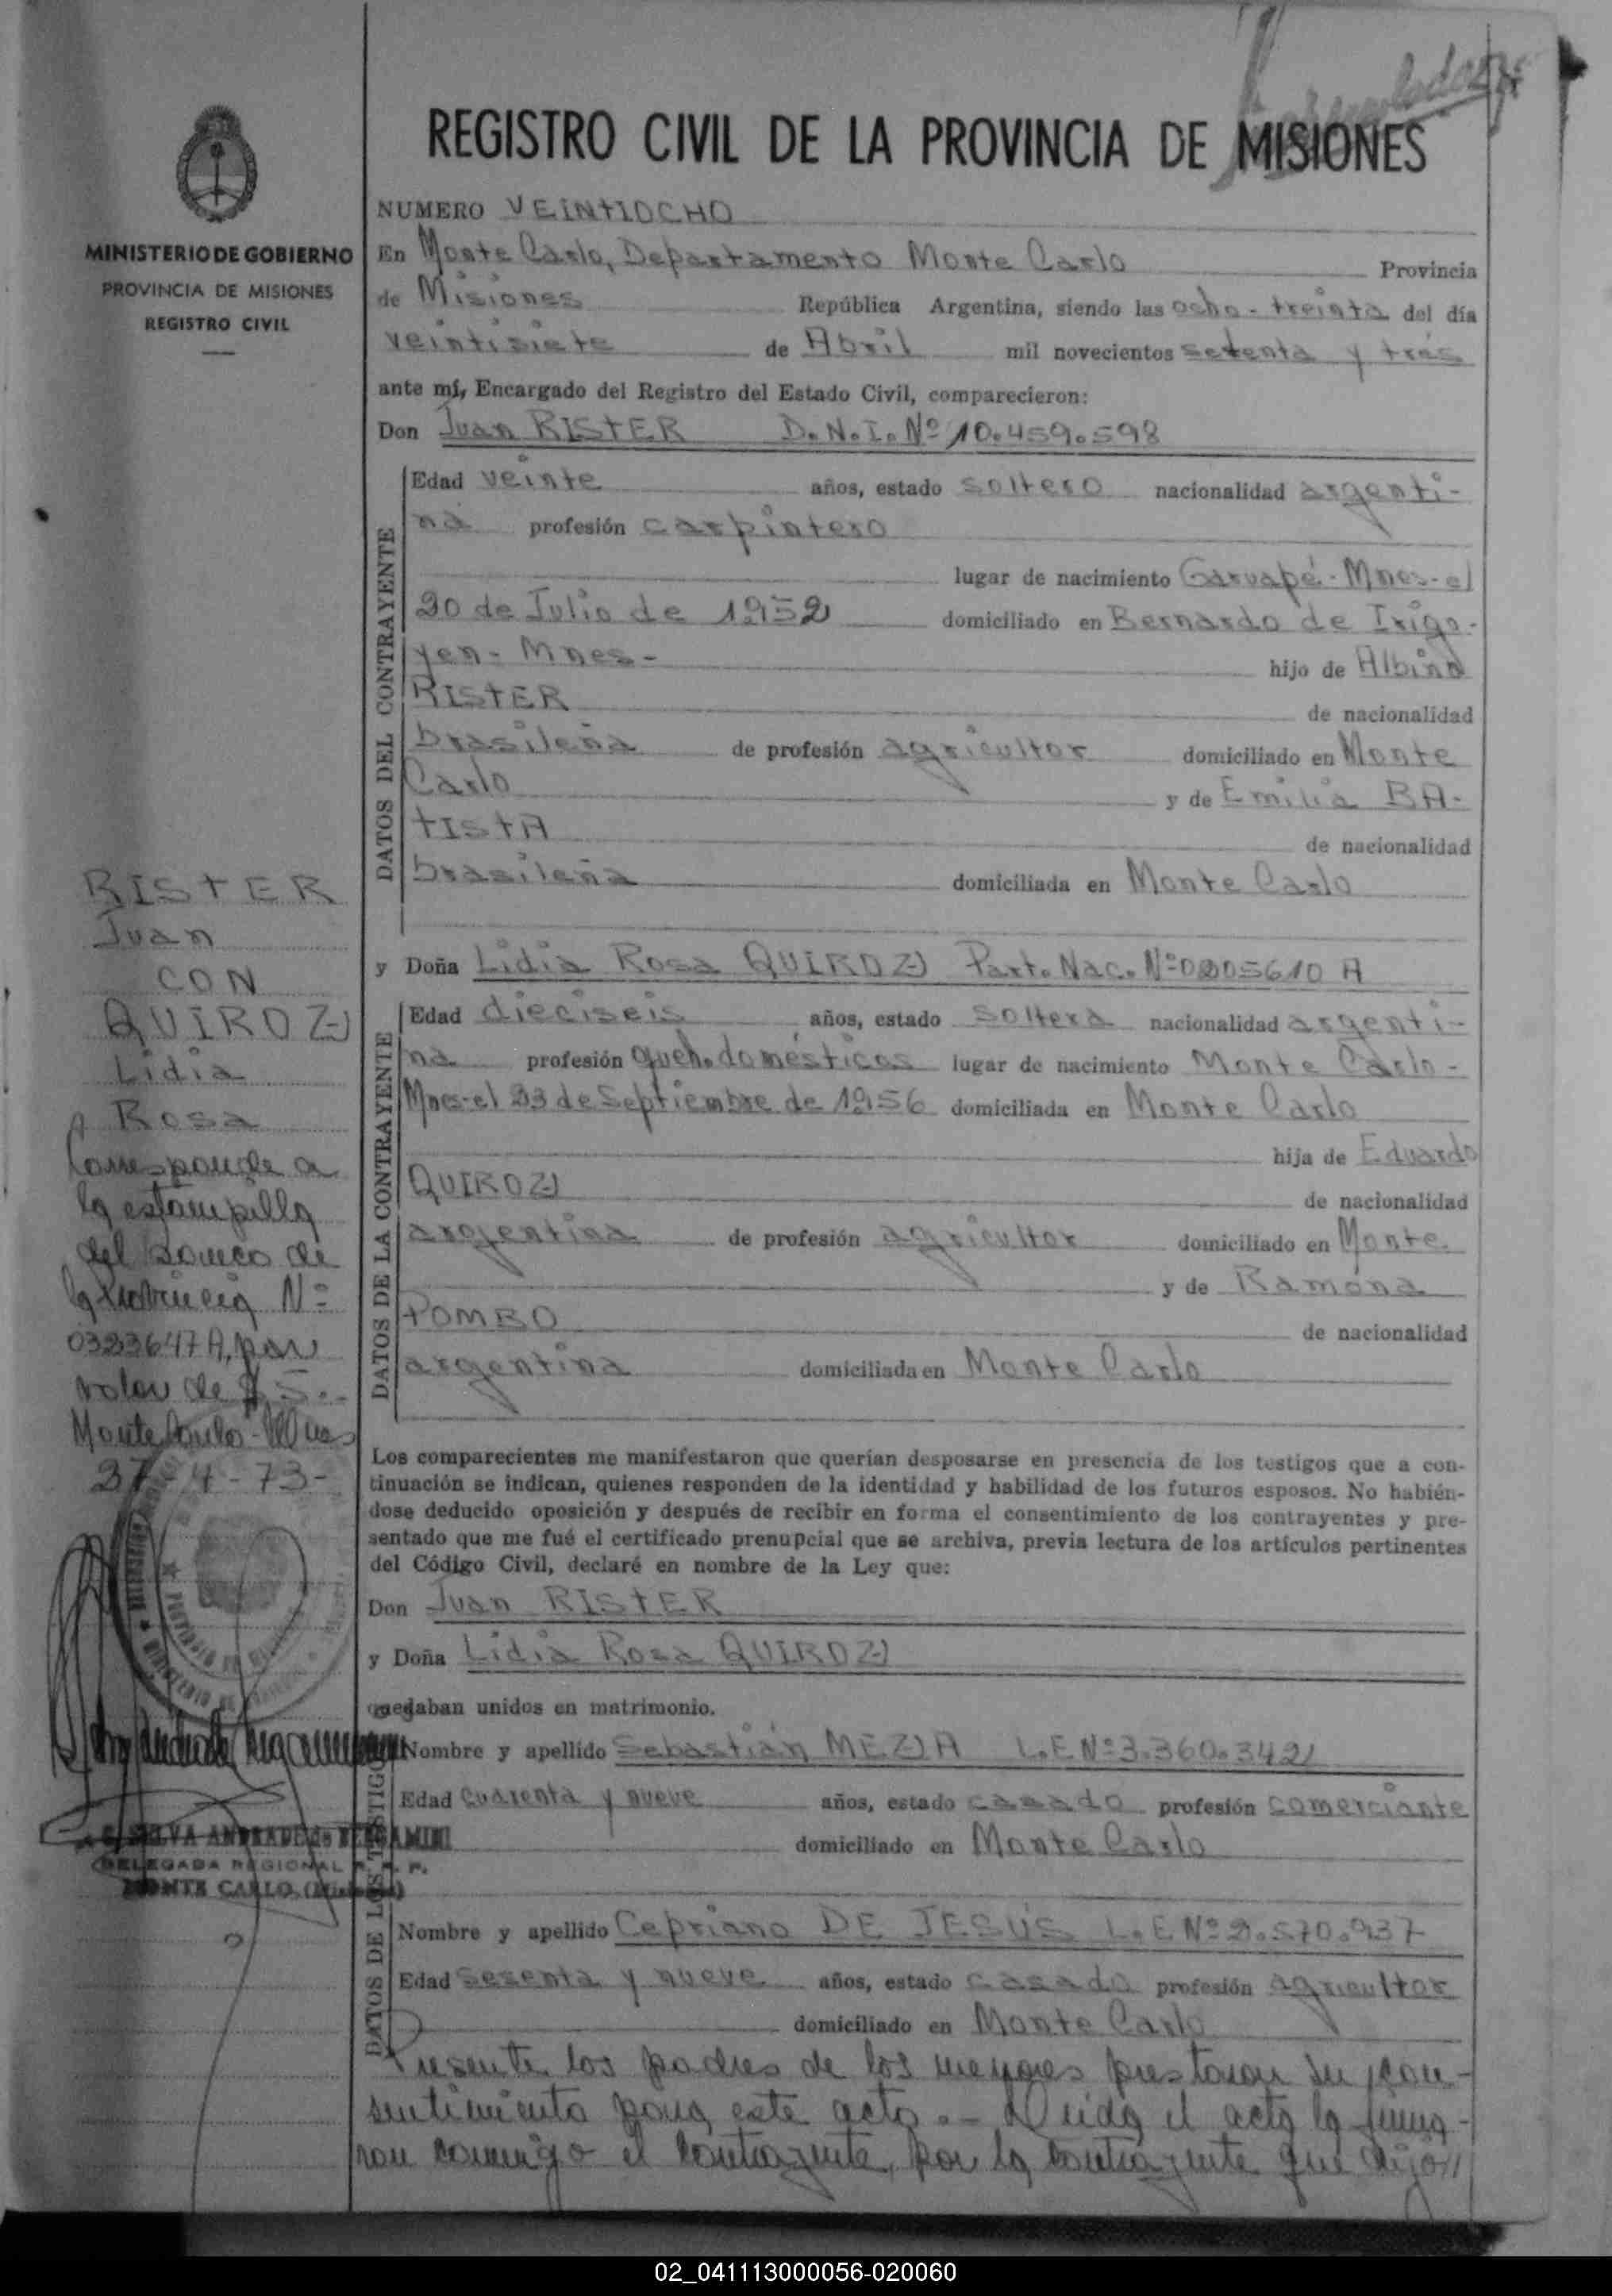 REGISTRO CIVIL DE LA PROVINCIA DE MISIONES
MINISTERIO DE GOBIERNO
PROVINCIA DE MISIONES
REGISTRO CIVIL
NUMERO VEINTIOCHO
En Monte Carlo, Departamento Monte Carlo Provincia
de Misiones República Argentina, siendo las ocho - treinta del día
veintisiete de Abril mil novecientos setenta y tres
ante mí, Encargado del Registro del Estado Civil, comparecieron:
Don Juan RISTER D.N.I. Nº 10.459.598
DATOS DEL CONTRAYENTE
Edad veinte años, estado soltero nacionalidad argenti-
na profesión carpintero
lugar de nacimiento Garuapé - Mnes - el
20 de Julio de 1952 domiciliado en Bernardo de Irigo-
yen - Mnes - hijo de Albino
RISTER de nacionalidad
brasileña de profesión agricultor domiciliado en Monte
Carlo y de Emilia BA-
TISTA de nacionalidad
brasileña domiciliada en Monte Carlo
y Doña Lidia Rosa QUIROZ Part. Nac. Nº 0205610 A
DATOS DE LA CONTRAYENTE
Edad dieciseis años, estado soltera nacionalidad argenti-
na profesión queh. domésticos lugar de nacimiento Monte Carlo -
Mnes - el 23 de Septiembre de 1956 domiciliada en Monte Carlo
hija de Eduardo
QUIROZ de nacionalidad
argentina de profesión agricultor domiciliado en Monte
y de Ramona
POMBO de nacionalidad
argentina domiciliada en Monte Carlo
Los comparecientes me manifestaron que querían desposarse en presencia de los testigos que a con-
tinuación se indican, quienes responden de la identidad y habilidad de los futuros esposos. No habién-
dose deducido oposición y después de recibir en forma el consentimiento de los contrayentes y pre-
sentado que me fué el certificado prenupcial que se archiva, previa lectura de los artículos pertinentes
del Código Civil, declaré en nombre de la Ley que:
Don Juan RISTER
y Doña Lidia Rosa QUIROZ
quedaban unidos en matrimonio.
DATOS DE LOS TESTIGOS
Nombre y apellido Sebastián MEZA L.E Nº 3.360.342
Edad cuarenta y nueve años, estado casado profesión comerciante
domiciliado en Monte Carlo
Nombre y apellido Cepriano DE JESÚS L.E Nº 2.570.937
Edad sesenta y nueve años, estado casado profesión agricultor
domiciliado en Monte Carlo
Presente los padres de los menores prestaron su con-
sentimiento para este acto. - Leida el acta la firma-
ron conmigo el contrayente, por la contrayente que dijo//
RISTER
Juan
CON
QUIROZ
Lidia
Rosa
Corresponde a
la estampilla
del Banco de
la Provincia Nº
0323647 A, por
valor de $ 5.-
Monte Carlo - Mnes
27 - 4 - 73 -
SILVA ANDRADE de BERGAMINI
DELEGADA REGIONAL R. P.
MONTE CARLO (Misiones)
02_041113000056-020060